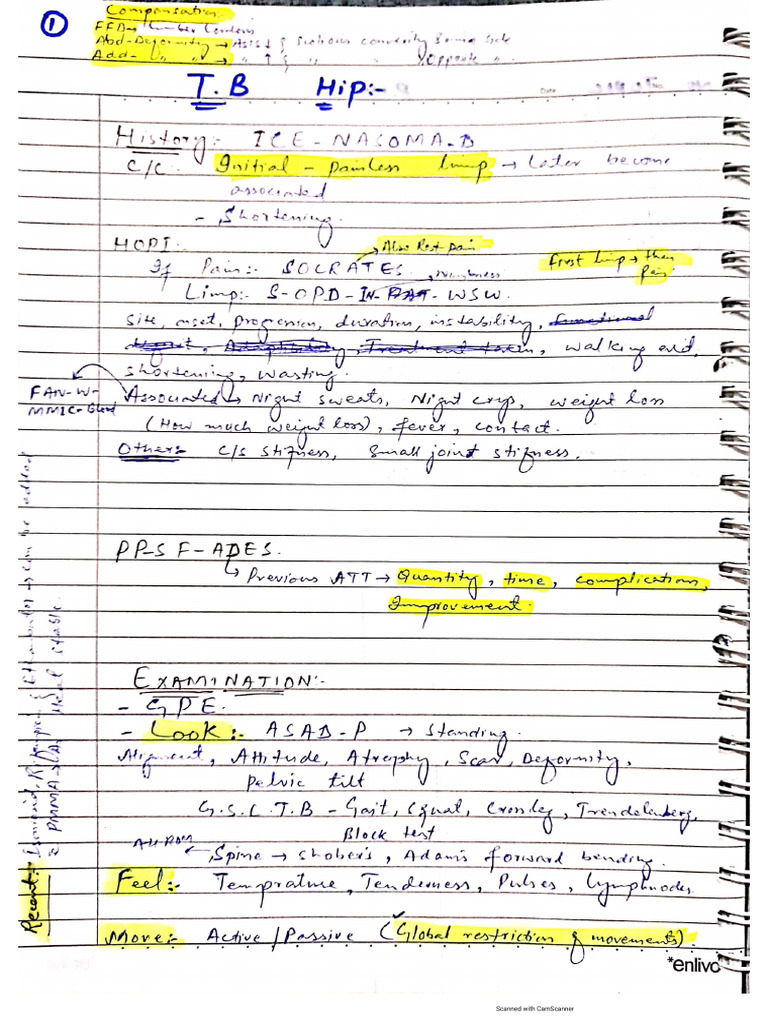 1
Compensation
FFD → Lumber Lordosis
Abd-Deformity → ASIS ↓ & Scoliosis convexity same side
Add- " " → " ↑ & " " opposite "
T.B Hip:-
Date No.
History:- ICE-NASOMA-B
C/C: Initial - painless limp → Later become
associated
- Shortening.
HOPI:
→ Also Rest pain
If Pain:- SOCRATES.
First limp → then
pain
Limp:- S-OPD-IN- -WSW.
site, onset, progression, duration, instability, functional
, Adaptability, Treatment taken, walking aid,
shortening, wasting.
FAN-W-
MMIC-Blood
Associated → Night sweats, Night crys, weight loss
(How much weight loss), fever, contact.
Others:- C/S stifness, Small joint stifness.
PP-SF-ADES.
↳ Previous ATT → Quantity, time, complication,
Improvement.
EXAMINATION:-
- GPE.
- Look:- ASAD-P → Standing.
Alignment, Attitude, Atrophy, Scar, Deformity,
pelvic tilt
G.S.C.T.B - Gait, Equal, Crossleg, Trendelenberg,
Block test
Spine → shober's, Adam's forward bending.
Feel:- Temprature, Tenderness, Pulses, Lymphnodes.
Move:- Active/Passive (Global restriction of movements).
Recent:-
*enlivo
Scanned with CamScanner